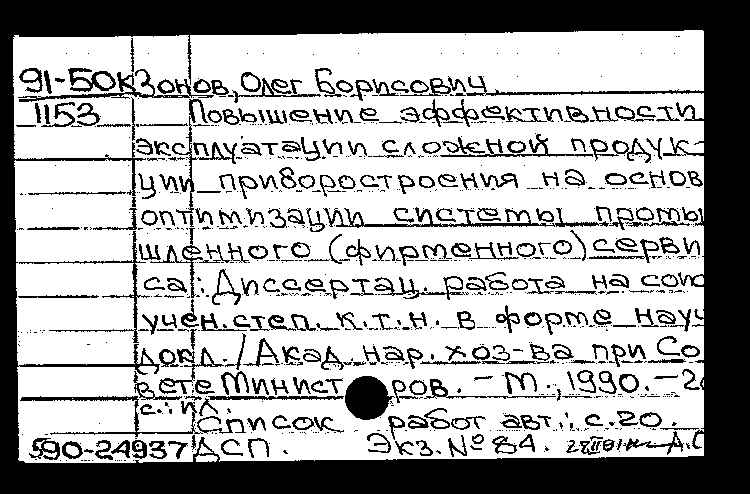 91-50к Зонов, Олег Борисович.
1153 Повышение эффективности
эксплуатации сложной продук-
ции приборостроения на основ
оптимизации системы промы
шленного (фирменного) серви
са: Диссертац. работа на соис
учен. степ. к.т.н. в форме науч
докл. / Акад. нар. хоз-ва при Со
вете Министров. - М., 1990. - 20
с.: ил.
Список работ авт.: с. 20.
590-24937 ДСП. Экз. № 84.